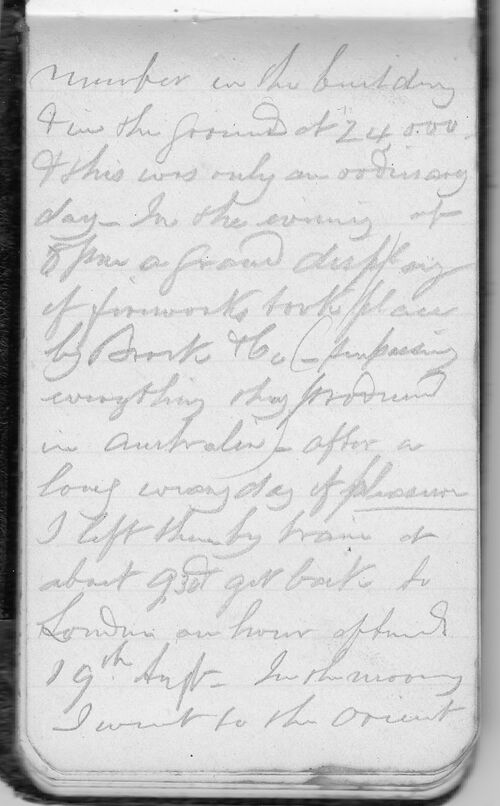 number in the building
& in the ground at 24,000.
& this was only an ordinary
day – In the evening at
8 pm a grand display
of fireworks took place
by Brock & Co (surpassing
everything they produced
in Australia) – after a
long weary day of pleasure
I left then by train at
about 9 30 get back to
London an hour afterwds
19th Augt – In the morning
I went to the Orient